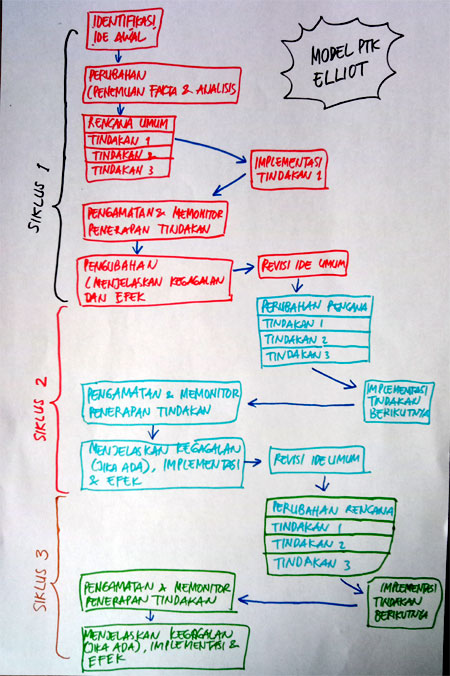 IDENTIFIKASI
IDE AWAL
MODEL PTK
ELLIOT
PERUBAHAN
(PENEMUAN FAKTA & ANALISIS
RENCANA UMUM
TINDAKAN 1
TINDAKAN 2
TINDAKAN 3
IMPLEMENTASI
TINDAKAN 1
SIKLUS 1
PENGAMATAN & MEMONITOR
PENERAPAN TINDAKAN
PENGUBAHAN
(MENJELASKAN KEGAGALAN
DAN EFEK
REVISI IDE UMUM
PERUBAHAN RENCANA
TINDAKAN 1
TINDAKAN 2
TINDAKAN 3
SIKLUS 2
IMPLEMENTASI
TINDAKAN
BERIKUTNYA
PENGAMATAN & MEMONITOR
PENERAPAN TINDAKAN
MENJELASKAN KEGAGALAN
(JIKA ADA), IMPLEMENTASI
& EFEK
REVISI IDE UMUM
PERUBAHAN RENCANA
TINDAKAN 1
TINDAKAN 2
TINDAKAN 3
SIKLUS 3
IMPLEMENTASI
TINDAKAN
BERIKUTNYA
PENGAMATAN & MEMONITOR
PENERAPAN TINDAKAN
MENJELASKAN KEGAGALAN
(JIKA ADA), IMPLEMENTASI &
EFEK